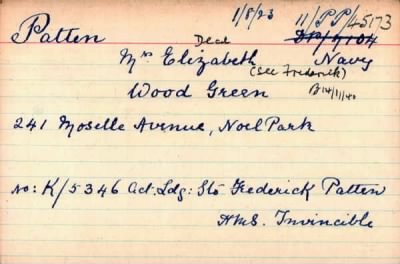 1/8/23 11/PP/45173
Patten Decd DP/4104
Mrs Elizabeth Navy
(see Frederick)
Wood Green
241 Moselle Avenue, Noel Park
No: K/5346 Act: Ldg: Sto Frederick Patten
HMS. Invincible